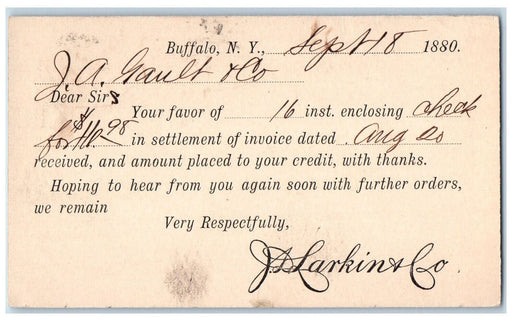 Buffalo, N. Y., Sept 18 1880.
J. A. Gault & Co
Dear Sirs
Your favor of 16 inst. enclosing check
for $16.98 in settlement of invoice dated Aug 20
received, and amount placed to your credit, with thanks.
Hoping to hear from you again soon with further orders,
we remain
Very Respectfully,
J. D. Larkin & Co.